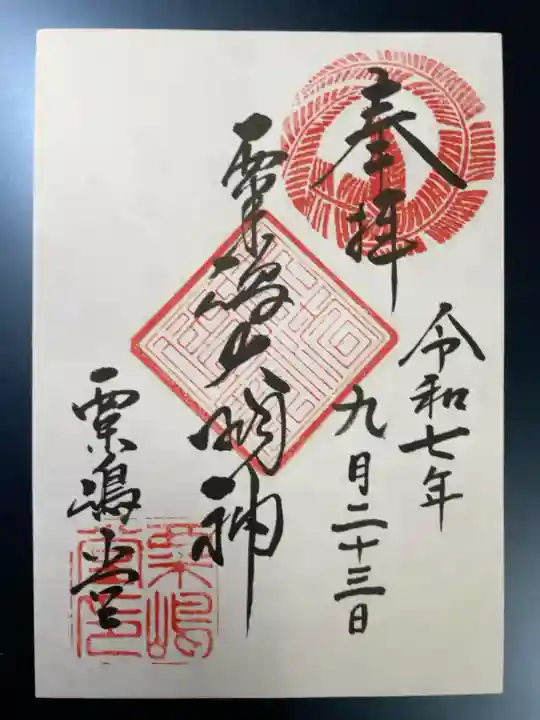 奉拝
令和七年
九月二十三日
粟嶋大明神
粟嶋堂
粟嶋
堂印